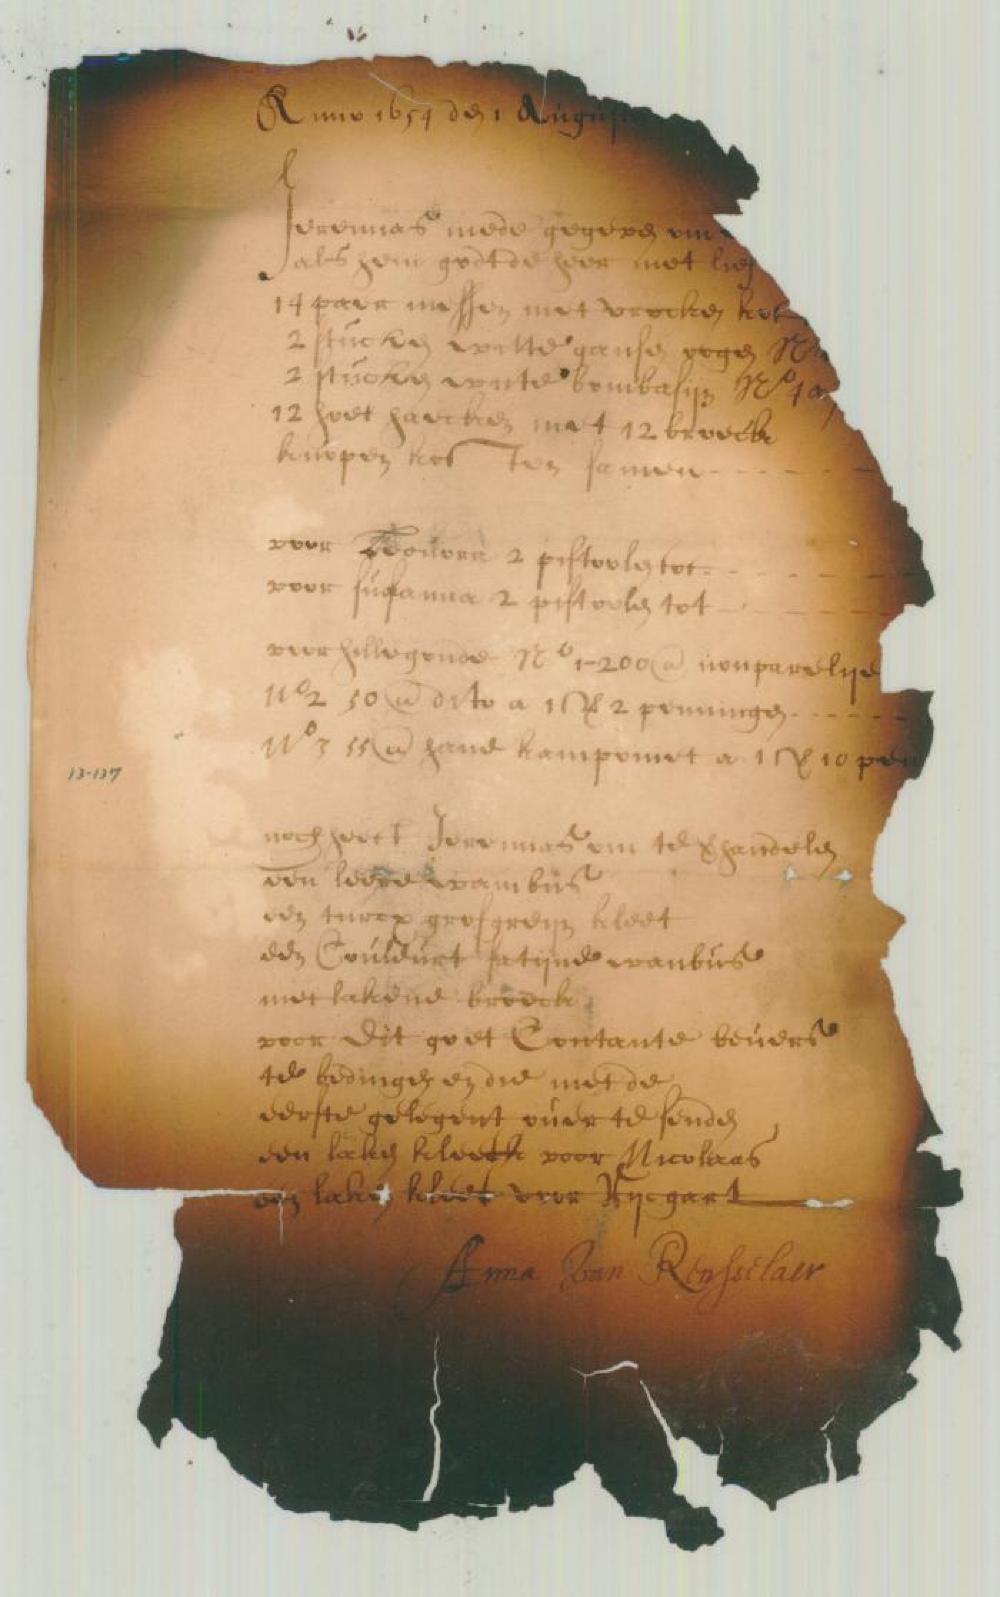 Anno 1654 den 1 Augus
Jeremias mede gegeven om
als hem godt de heer met lief
14 paer messen met
2 stucken witte ganse ogen N
2 stucken witte bombasijn No
12 hoet haecken met 12 broeck
knopen kost Ten samen
voor Leonora 2 pistoolen tot
voor susanna 2 pistoolen tot
voor hillegonde No 1-200 @ nonparelije
No 2 50 @ dito a 2 penningen
No 3 55 @ hane kampoinet a 10 pen
noch heeft Jeremias om te verhandelen
een leere wambus
een turcx grofgreijn kleet
een Couleurt satijnde wanbus
met lakene broeck
voor dit goet Contante bevers
te bedingen en die met de
eerste gelegent over te senden
een laken kleet voor Nicolaas
een laken kleet voor Rijcgart
Anna Van Rensselaer
13-137